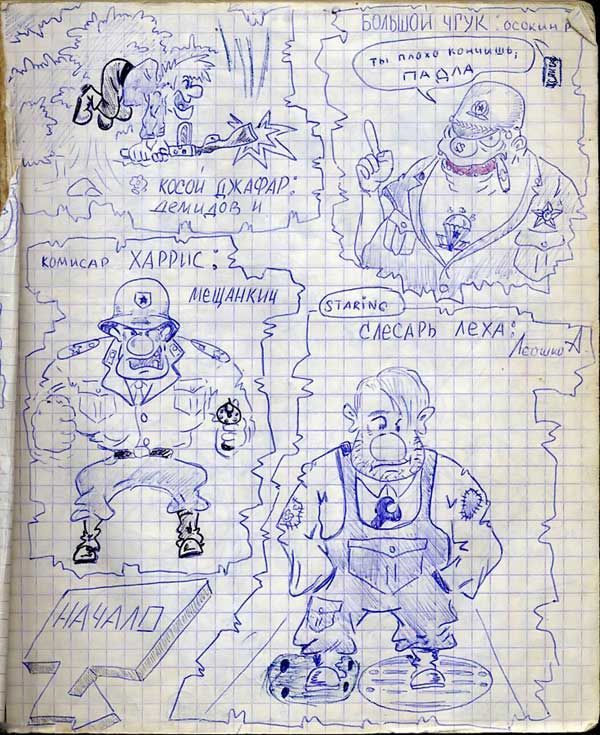 БОЛЬШОЙ ЧГУК: ОСОКИН Р
ТЫ ПЛОХО КОНЧИШЬ,
ПАДЛА
КОСОЙ ДЖАФАР:
ДЕМИДОВ И
КОМИСАР ХАРРИС:
МЕЩАНКИН
STARING
СЛЕСАРЬ ЛЕХА:
А
НАЧАЛО